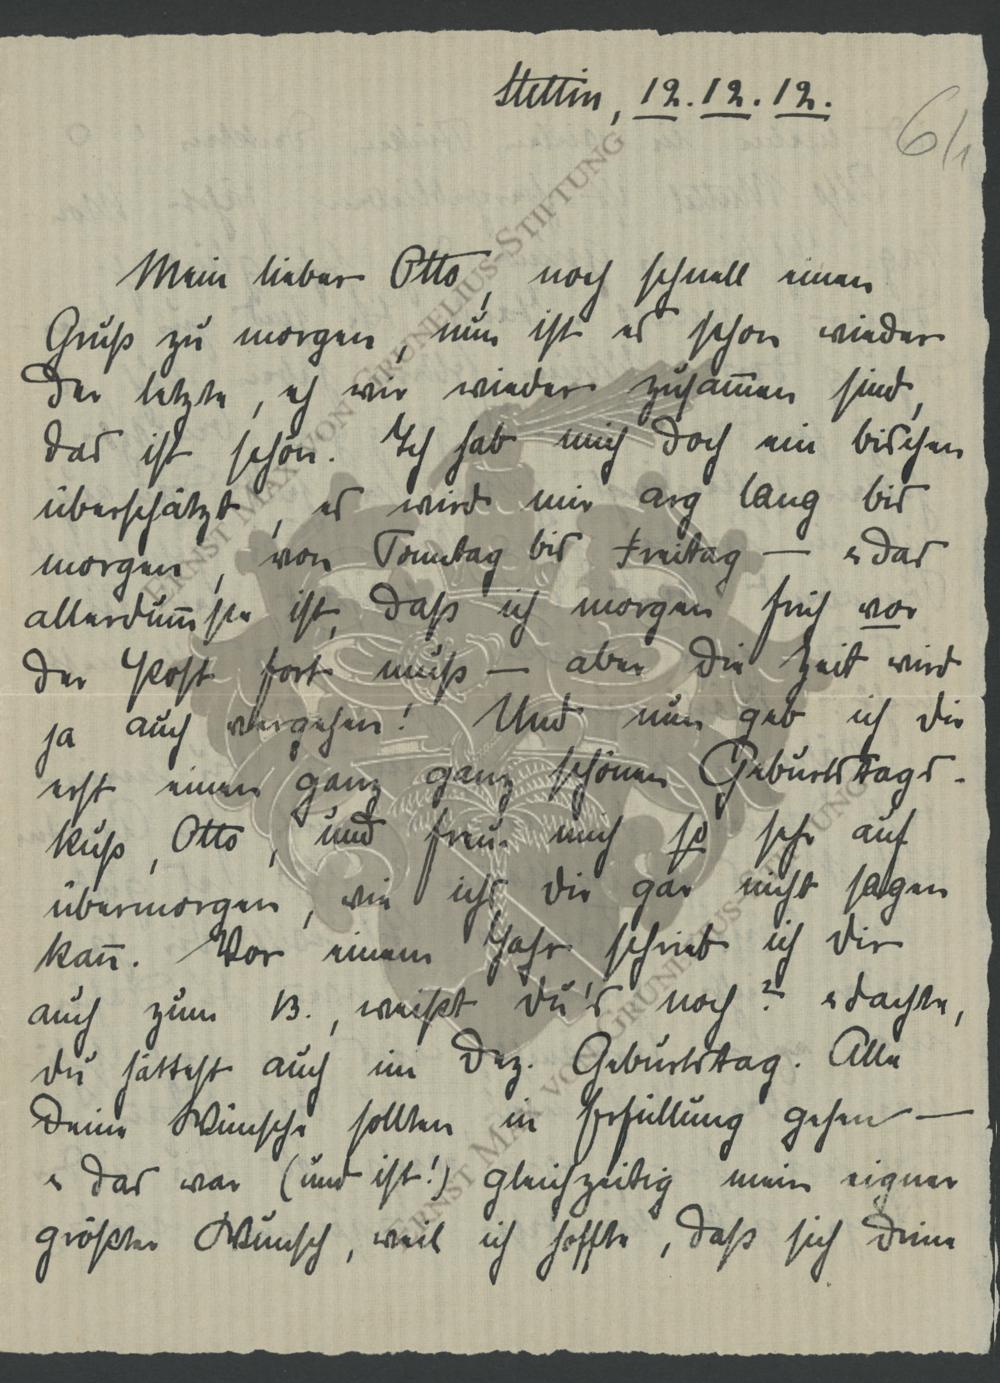 Stettin, 12.12.12.
6/1
Mein lieber Otto, noch schnell einen
Gruß zu morgen, nun ist es schon wieder
der letzte, eh wir wieder zusam̄en sind,
das ist schön. Ich hab mich doch ein bischen
überschätzt, es wird mir arg lang bis
morgen, von Sonntag bis Freitag — u das
allerdum̄ste ist, daß ich morgen früh vor
der Post fort muß — aber die Zeit wird
ja auch vergehen! Und nun geb ich dir
erst einen ganz ganz schönen Geburtstags-
kuß, Otto, und freu mich so sehr auf
übermorgen, wie ichs dir gar nicht sagen
kan̄. Vor einem Jahr schrieb ich dir
auch zum 13., weißt du's noch? u dachte,
du hättest auch im Dez. Geburtstag. Alle
Deine Wünsche sollten in Erfüllung gehen —
u das war (und ist!) gleichzeitig mein eigner
größter Wunsch, weil ich hoffte, daß sich deine
ERNST MAX VON GRUNELIUS-STIFTUNG
ERNST MAX VON GRUNELIUS-STIFTUNG